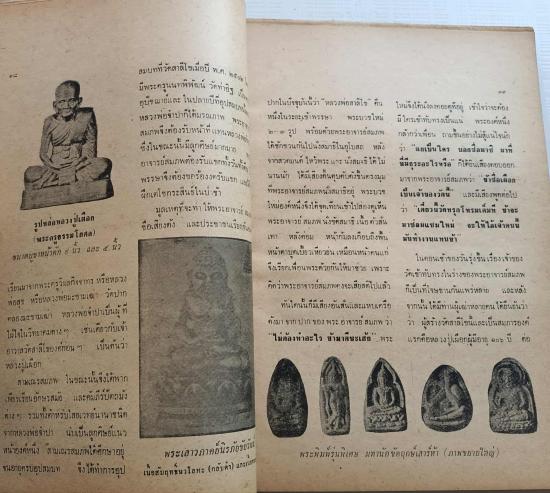 ๑๘
รูปหล่อหลวงปู่เผือก
(พระครูธรรมโกศล)
ขนาดบูชาหน้าตัก ๙ นิ้ว และ ๕ นิ้ว
เรียนมาจากพระครูวิมลกิจจาทร หรือหลวง
พ่อสุข หรือหลวงพ่อมะขามเฒ่า วัดปาก
คลองมะขามเฒ่า หลวงพ่อจำปาเป็นผู้
ไม่โจในวิทยาคมต่าง ๆ เช่นเดียวกับเจ้า
อาวาสวัดสาลีโของค์ก่อน ๆ เป็นคนว่า
หลวงปู่เผือก
สามเณรสมภพ ในขณะนั้นจึงได้พาก
เพียรเรียนอักษรสมัย และคัมภีร์บัดมง
ต่าง ๆ รวมทั้งตำหรับไสยเวทอันนานาชนิด
จากหลวงพ่อจำปา นับเป็นลูกศิษย์แนว
หน้าองค์หนึ่ง สามเณรสมภพได้ศึกษาอยู่
จนอายุครบอุปสมบท จึงได้ทำการอุป
สมบทที่วัดสาลีโขเมื่อปี พ.ศ.
มีพระครูนนทพิพัฒน์ วัดท่าอิฐ
อุปัชฌาย์และ ในปลายปีที่อุปสมบท
หลวงพ่อจำปาก็ได้มรณภาพ
สมภพจึงต้องรับหน้าที่แทนหลวง
ในขณะนั้นมีลูกศิษย์มากมาย
อาจารย์สมภพต้องรับแขกทั้งวันทั้ง
พรรษาจึงต้องยกร้องงดรับแขก
ผิดเตโชกระสิณในป่าช้า
มูลเหตุที่จะทำให้พระอาจารย์
ชื่อเสียงดัง และประชาชนเรียก
พระเสาร์ภาคต์นิรภัยขัย
เนื้อสัมฤทธิ์นวโลหะ (กลับดำ)
๑๙
ปากในปัจจุบันนี้ว่า "หลวงพ่อสาลีโข" คืน
หนึ่งในระยะเข้าพรรษา พระบวชใหม่
๒-๓ รูป พร้อมด้วยพระอาจารย์สมภพ
ได้ชักชวนกันไปนั่งสมาธิในอุโบสถ หลัง
จากสวดมนต์ ไหว้พระแล้ว นั่งสมาธิได้ไม่
นานนัก ได้มีเสียงดินดุงดับดังขึ้นตรงมุม
ที่พระอาจารย์สมภพนั่งสมาธิอยู่ พระบวช
ใหม่องค์หนึ่งจึงได้จุดเทียนเข้าไปส่องดูเห็น
พระอาจารย์สมภพ นั่งขัดสมาธิ เนื้อตัวสั่น
เทา หลังค่อม หน้าก้มลงเกือบถึงพื้น
หน้าตาบูดเบี้ยวเหี่ยวย่น เหมือนหน้าคนแก่
จึงเรียกเพื่อนพระด้วยกันให้มาช่วย เพราะ
คิดว่าพระอาจารย์สมภพคงจะเสียสติไปแล้ว
ทันใดนั้นก็มีเสียงอันสั่นและแหบเครือ
ดังมา จากปาก ของ พระ อาจารย์ สมภพ ว่า
"ไม่ต้องทำอะไร ข้ามาดีนะเฮ้ย" พระ
ใหม่จึงได้นั่งลงคอยดูที่อยู่ เข้าใจว่าจะต้อง
มีใครเข้าทับทรงเป็นแน่ พระองค์หนึ่ง
กล้ากว่าเพื่อน ถามขึ้นอย่างไม่สู้แน่ใจนัก
ว่า "แลเป็นใคร บอกชื่อมาซิ มาที่
นี่มีธุระอะไรหรือ ก็ได้ยินเสียงตอบออก
มาจากปากพระอาจารย์สมภพว่า "ข้าชื่อเผือก
เป็นเจ้าของวัดนี้" และมีเสียงพูดต่อไป
ว่า "เดี๋ยวนี้วัดทรุดโทรมเต็มที่ ข้าจะ
มาซ่อมแซมใหม่ จะให้ไอเจ้าคนนี้
มันทำงานแทนข้า"
ในตอนเช้าของวันรุ่งขึ้น เรื่องเจ้าของ
วัดเข้าทับทรงในร่างของพระอาจารย์สมภพ
ก็เป็นที่โจษขานกันแพร่หลาย และหลัง
จากนั้น ได้มีทานผู้เฒ่าหลายคนได้ยืนยันว่า
ว่า ผู้สร้างวัดสาลีโขนี้และเป็นสมภารองค์
แรกคือหลวงปู่เผือกผู้มีอายุ ๑๐๖ ปี คือ
พระพิมพ์รุ่นพิเศษ มหานัตขัตฤกษ์เสาร์ห้า (ภาพขยายใหญ่)